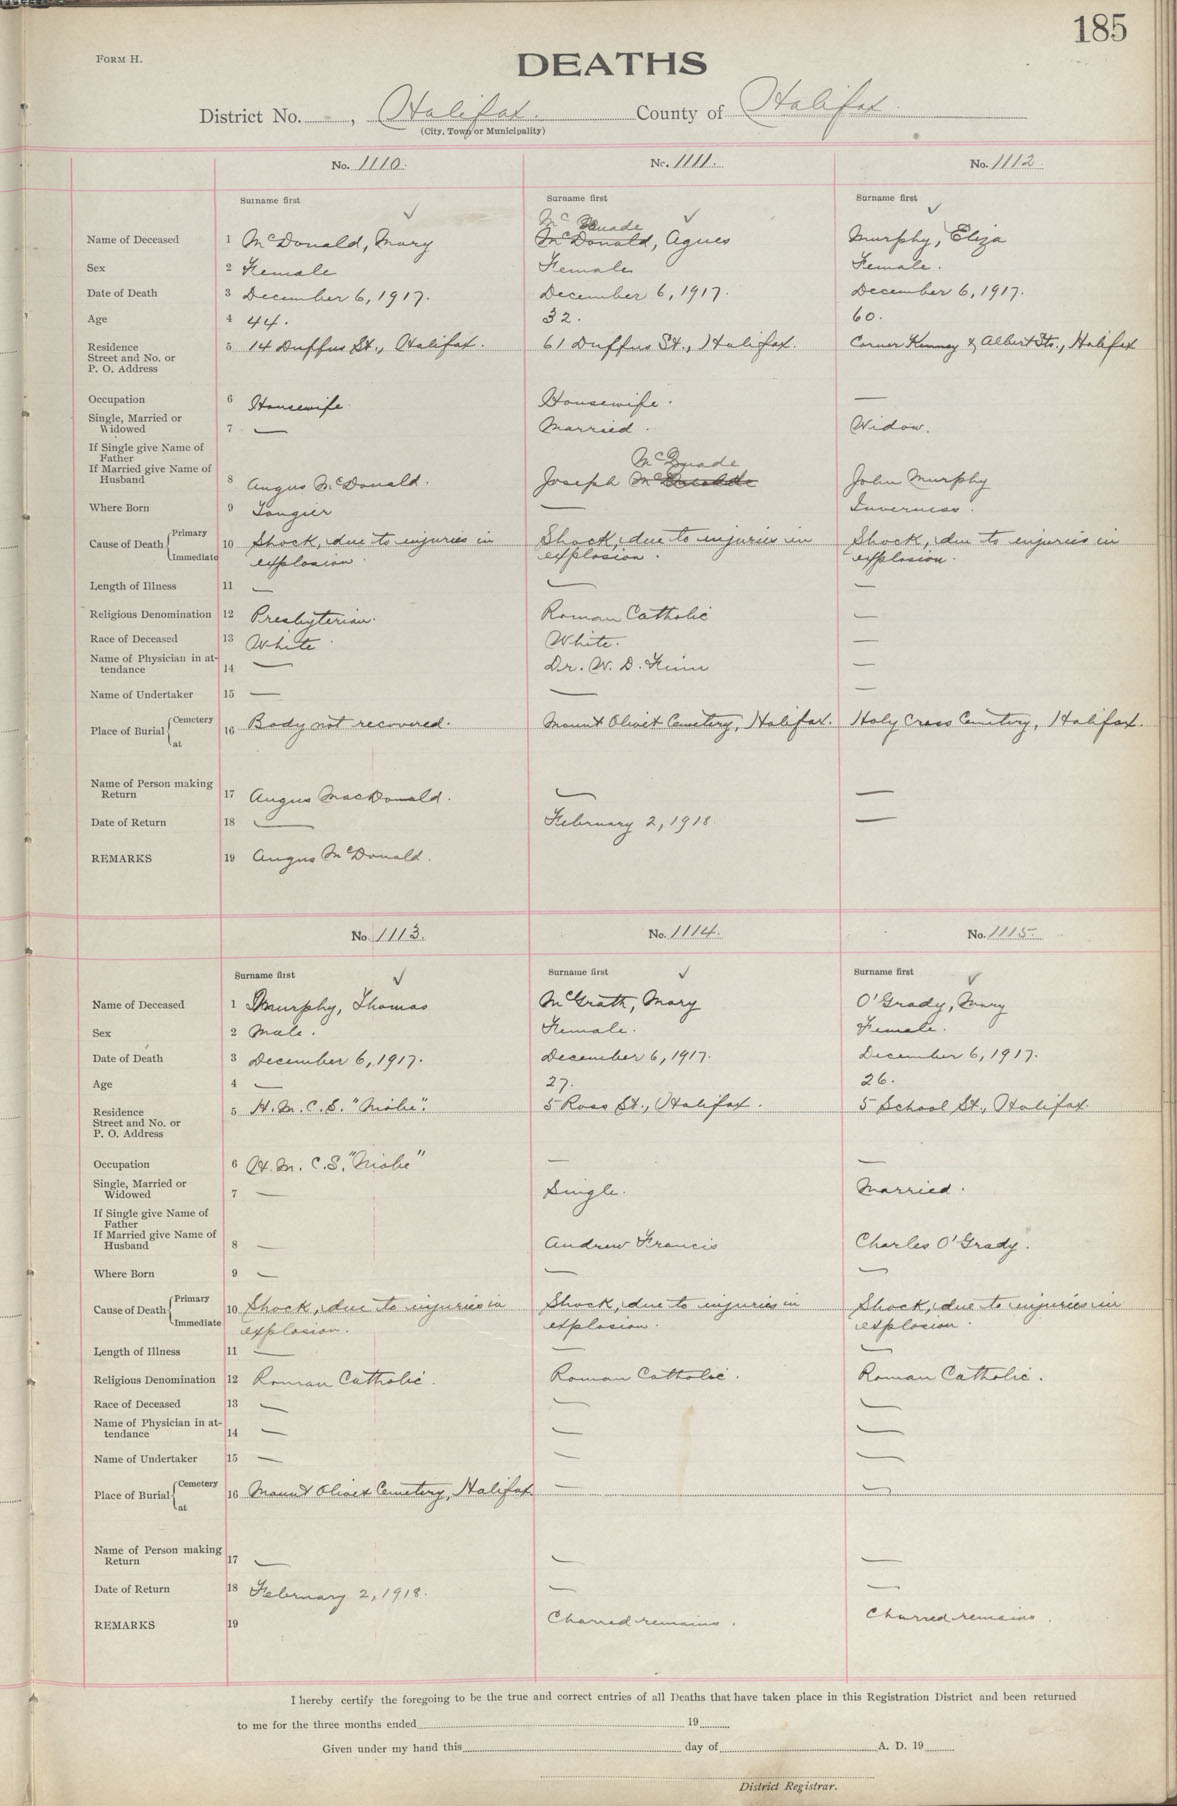 185
FORM H.
DEATHS
District No. , Halifax. County of Halifax.
(City, Town or Municipality)
No. 1110. No. 1111. No. 1112.
Surname first Surname first Surname first
Mc Quade
Name of Deceased 1 McDonald, Mary McDonald, Agnes Murphy, Eliza
Sex 2 Female Female Female.
Date of Death 3 December 6, 1917. December 6, 1917. December 6, 1917.
Age 4 44. 32. 60.
Residence 5 14 Duffus St., Halifax. 61 Duffus St., Halifax. Corner Kenney & Albert Sts., Halifax
Street and No. or
P. O. Address
Occupation 6 Housewife. Housewife. —
Single, Married or
Widowed 7 — Married. Widow.
If Single give Name of
Father
If Married give Name of McQuade
Husband 8 Angus McDonald. Joseph John Murphy
Where Born 9 Tangier — Inverness.
Cause of Death Primary 10 Shock, due to injuries in Shock, due to injuries in Shock, due to injuries in
Immediate explosion. explosion. explosion.
Length of Illness 11 — — —
Religious Denomination 12 Presbyterian. Roman Catholic —
Race of Deceased 13 White. White. —
Name of Physician in at-
tendance 14 — Dr. W. D. Finn —
Name of Undertaker 15 — — —
Place of Burial Cemetery 16 Body not recovered. Mount Olivet Cemetery, Halifax. Holy Cross Cemetery, Halifax.
at
Name of Person making
Return 17 Angus MacDonald. — —
Date of Return 18 — February 2, 1918. —
REMARKS 19 Angus McDonald.
No. 1113. No. 1114. No. 1115.
Surname first Surname first Surname first
Name of Deceased 1 Murphy, Thomas McGrath, Mary O'Grady, Mary
Sex 2 Male. Female. Female.
Date of Death 3 December 6, 1917. December 6, 1917. December 6, 1917.
Age 4 — 27. 26.
Residence 5 H. M. C. S. "Niobe". 5 Ross St., Halifax. 5 School St., Halifax.
Street and No. or
P. O. Address
Occupation 6 H. M. C. S. "Niobe" — —
Single, Married or
Widowed 7 — Single. Married.
If Single give Name of
Father
If Married give Name of
Husband 8 — Andrew Francis Charles O'Grady.
Where Born 9 — — —
Cause of Death Primary 10 Shock, due to injuries in Shock, due to injuries in Shock, due to injuries in
Immediate explosion. explosion. explosion.
Length of Illness 11 — — —
Religious Denomination 12 Roman Catholic. Roman Catholic. Roman Catholic.
Race of Deceased 13 — — —
Name of Physician in at-
tendance 14 — — —
Name of Undertaker 15 — — —
Place of Burial Cemetery 16 Mount Olivet Cemetery, Halifax. — —
at
Name of Person making
Return 17 — — —
Date of Return 18 February 2, 1918. — —
REMARKS 19 Charred remains. Charred remains.
I hereby certify the foregoing to be the true and correct entries of all Deaths that have taken place in this Registration District and been returned
to me for the three months ended 19
Given under my hand this day of A. D. 19
District Registrar.